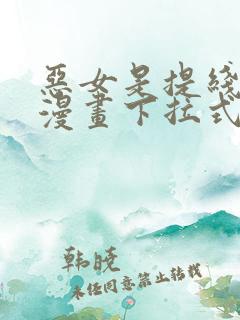 惡女是提綫
漫畫下拉式
韩晓
未经同意禁止转载